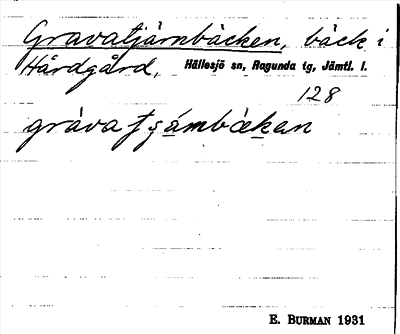 Gravatjärnbäcken, bäck i
Hårdgård, Hällesjö sn, Ragunda tg, Jämtl. l.
128
gràva tjämbä̀kan
E. BURMAN 1931